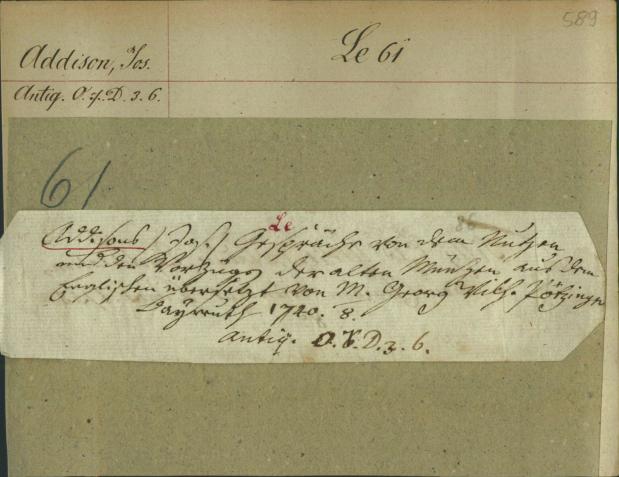 589
Addison, Jos.
Le 61
Antiq. O. γ. D. 3. 6.
61
Le
Addisons / Jos. / Gespräche von dem Nutzen
und den Vorzuge der alten Müntzen aus dem
Englischen übersetzt von M. Georg Wilh. Pötzinger
Bayreuth 1740. 8.
Antiq. O. γ. D. 3. 6.